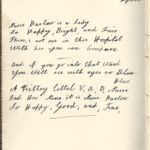 Nurse Harlow is a Lady
So Happy, Bright, and Fair
There's not one in this Hospital
With her you can Compare
And if you go into that Ward
You will see with eyes so blue
A Pretty little V. A. D. Nurse
And Her Name it is Nurse Harlow
So Happy, Good, and True.